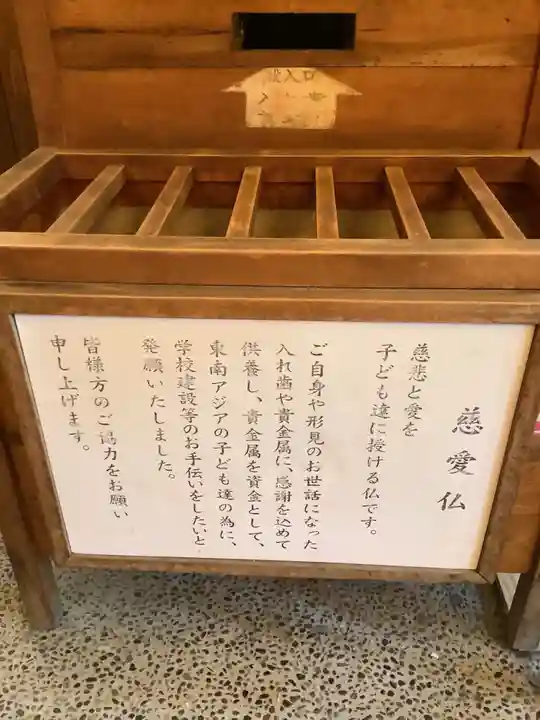 慈愛仏
慈悲と愛を
子ども達に授ける仏です。
ご自身や形見のお世話になった
入れ歯や貴金属に、感謝を込めて
供養し、貴金属を資金として、
東南アジアの子ども達の為に、
学校建設等のお手伝いをしたいと
発願いたしました。
皆様方のご協力をお願い
申し上げます。